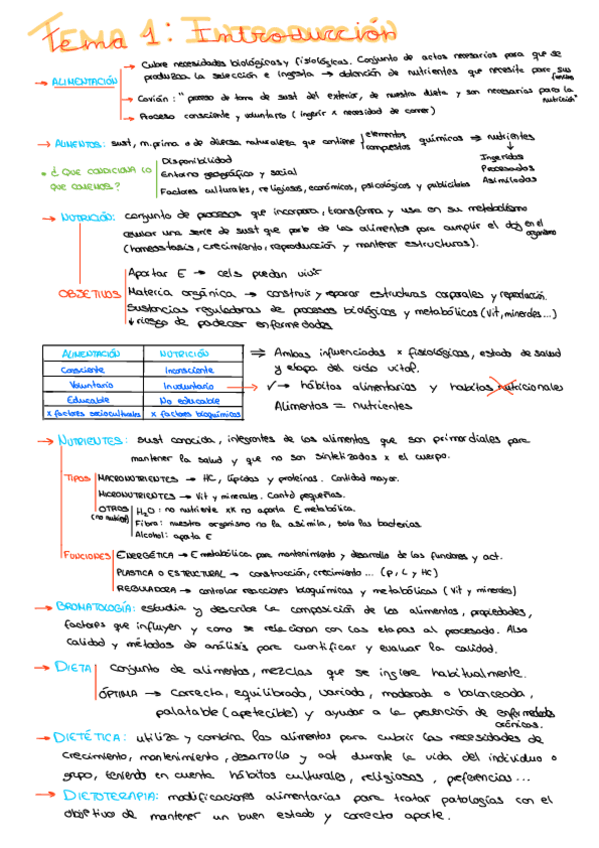 Tema 1: Introducción
→ Cubre necesidades biológicas y fisiológicas. Conjunto de actos necesarios para que se
produzca la selección e ingesta → obtención de nutrientes que necesite para sus
→ ALIMENTACIÓN
→ : "proceso de toma de sust del exterior, de nuestra dieta y son necesarias para la
nutrición"
→ Proceso consciente y voluntario (ingerir x necesidad de comer)
→ ALIMENTOS: sust, m.prima o de diversa naturaleza que contiene elementos
compuestos químicos ⇒ nutrientes
Ingeridos
Procesados
Asimilados
• ¿QUE CONDICIONA LO
QUE COMEMOS?
Disponibilidad
Entorno geográfico y social
Factores culturales, religiosos, económicos, psicológicos y publicitos
→ NUTRICIÓN: conjunto de procesos que incorpora, transforma y usa en su metabolismo
celular una serie de sust que parte de los alimentos para cumplir el obj en el
organismo
(homeostasis, crecimiento, reproducción y mantener estructuras).
OBJETIVOS
Aportar E → cels puedan vivir
Materia orgánica → construir y reparar estructuras corporales y reproducción.
Sustancias reguladoras de procesos biológicos y metabólicos (Vit, minerales...)
↓ riesgo de padecer enfermedades
ALIMENTACIÓN NUTRICIÓN
Consciente Inconsciente
Voluntario Involuntario
Educable No educable
x factores socioculturales x factores bioquímicos
⇒ Ambas influenciadas x fisiológicas, estado de salud
y etapa del ciclo vital.
✓→ hábitos alimentarios y habitos nutricionales
Alimentos = nutrientes
→ NUTRIENTES: sust conocida, integrantes de los alimentos que son primordiales para
mantener la salud y que no son sintetizados x el cuerpo.
TIPOS
MACRONUTRIENTES → HC, lípidos y proteínas. Cantidad mayor.
MICRONUTRIENTES → Vit y minerales. Cantd pequeñas.
OTROS
(no nutritivos)
H₂O: no nutriente xk no aporta E metabólica.
Fibra: nuestro organismo no la asimila, solo las bacterias.
Alcohol: aporta E
FUNCIONES
ENERGÉTICA → E metabólica para mantenimiento y desarrollo de las funciones y act.
PLÁSTICA O ESTRUCTURAL → construcción, crecimiento... (P, L y HC)
REGULADORA → controlar reacciones bioquímicas y metabólicas (Vit y minerales)
→ BROMATOLOGÍA: estudia y describe la composición de los alimentos, propiedades,
factores que influyen y como se relacionan con las etapas al procesado. Also
calidad y métodos de análisis para cuantificar y evaluar la calidad.
→ DIETA
conjunto de alimentos, mezclas que se ingiere habitualmente.
ÓPTIMA → correcta, equilibrada, variada, moderada o balanceada,
palatable (apetecible) y ayudar a la prevención de enfermedades
crónicas.
→ DIETÉTICA: utiliza y combina los alimentos para cubrir las necesidades de
crecimiento, mantenimiento, desarrollo y act durante la vida del individuo o
grupo, teniendo en cuenta hábitos culturales, religiosos, preferencias...
→ DIETOTERAPIA: modificaciones alimentarias para tratar patologías con el
objetivo de mantener un buen estado y correcto aporte.